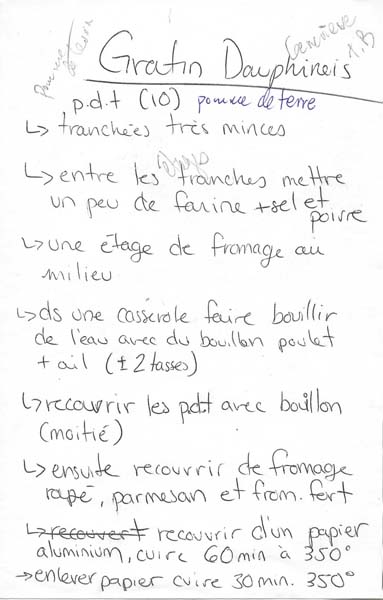 Pomme
de terre
Geneviève
T.B
Gratin Dauphinois
p.d.t (10) pomme de terre
↳ tranchées très minces
↳ entre les tranches mettre
un peu de farine + sel et
poivre
↳ une étage de fromage au
milieu
↳ ds une casserole faire bouillir
de l'eau avec du bouillon poulet
+ ail (± 2 tasses)
↳ recouvrir les pdt avec bouillon
(moitié)
↳ ensuite recouvrir de fromage
rapé, parmesan et from. fort
↳ recouvert recouvrir d'un papier
aluminium, cuire 60 min à 350°
→ enlever papier cuire 30 min. 350°